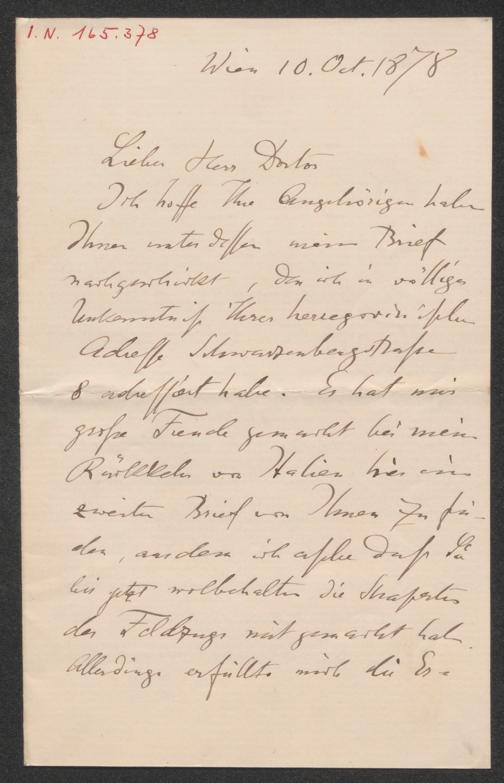 I. N. 165.378
Wien 10. Oct. 1878
Lieber Herr Doctor
Ich hoffe Ihre Angehörigen haben
Ihnen unterdessen meinen Brief
nachgeschickt, den ich in völliger
Unkenntniß Ihrer herzegowinischen
Adresse Schwarzenbergstraße
8 adressirt habe. Es hat mir
große Freude gemacht bei meiner
Rückkehr von Italien hier einen
zweiten Brief von Ihnen zu fin-
den, aus dem ich daß Sie
bis jetzt wolbehalten die Strapatzen
des Feldzugs mitgemacht haben.
Allerdings erfüllte mich die Er=